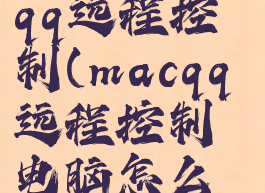 qq远程控
制(macqq
远程控制
电脑怎么